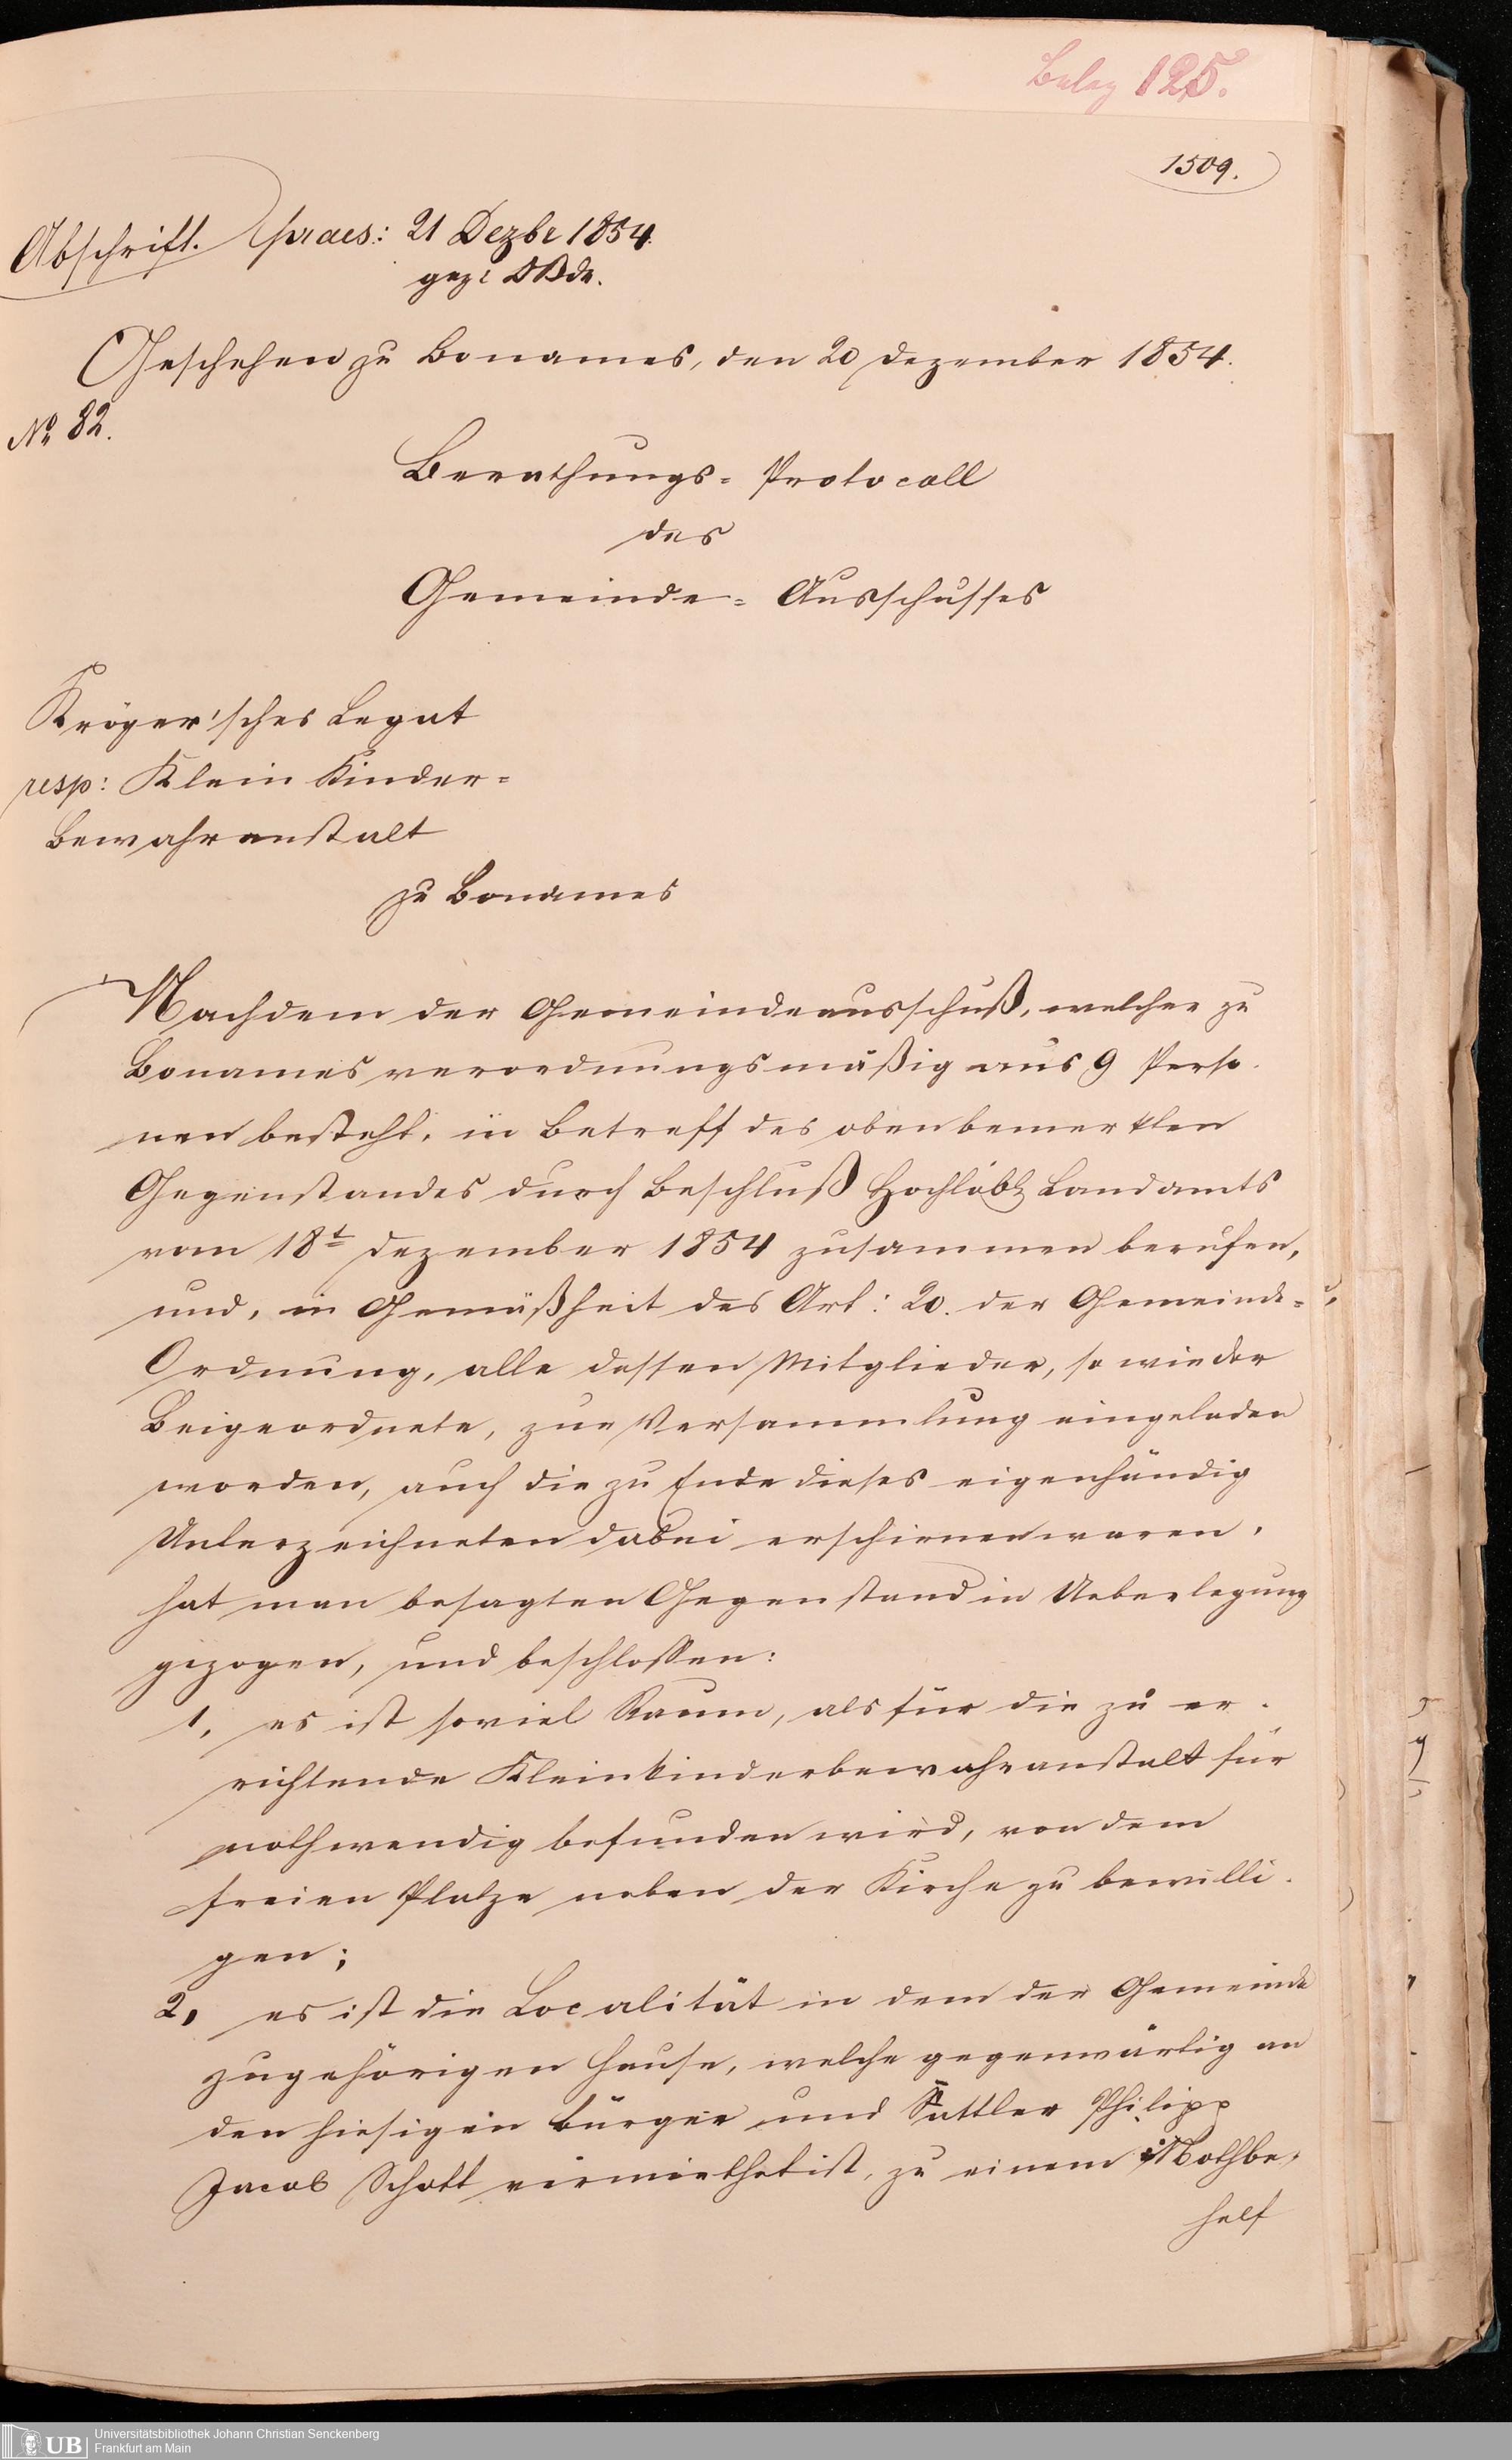 Beleg 125.
1509.
Abschrift. praes: 21 Dezbr 1854.
gez:
Geschehen zu Bonames, den 20 Dezember 1854.
No 82.
Berathungs- Protocoll
des
Gemeinde- Ausschusses
Kröger'sches Legat
resp: Klein Kinder-
Bewahranstalt
zu Bonames
Nachdem der Gemeindeausschuß, welcher zu
Bonames verordnungsmäßig aus 9 Perso-
nen besteht, in Betreff des obenbemerkten
Gegenstandes durch Beschluß Hochlöbl. Landamts
vom 18t Dezember 1854 zusammen berufen,
und, in Gemäßheit des Art: 20. der Gemeinde-
Ordnung, alle dessen Mitglieder, so wie der
Beigeordnete, zur Versammlung eingeladen
worden, auch die zu Ende dieses eigenhändig
Unterzeichneten dabei erschienen waren,
hat man besagten Gegenstand in Ueberlegung
gezogen, und beschlossen:
1, es ist soviel Raum, als für die zu er-
richtende Kleinkinderbewahranstalt für
nothwendig befunden wird, von dem
freien Platze neben der Kirche zu bewilli-
gen;
2, es ist die Localität in dem der Gemeinde
zugehörigen Hause, welche gegenwärtig an
den hiesigen Bürger und Sattler Philipp
Jacob Schott vermiethet ist, zu einem Nothbe-
helf
UB
Universitätsbibliothek Johann Christian Senckenberg
Frankfurt am Main